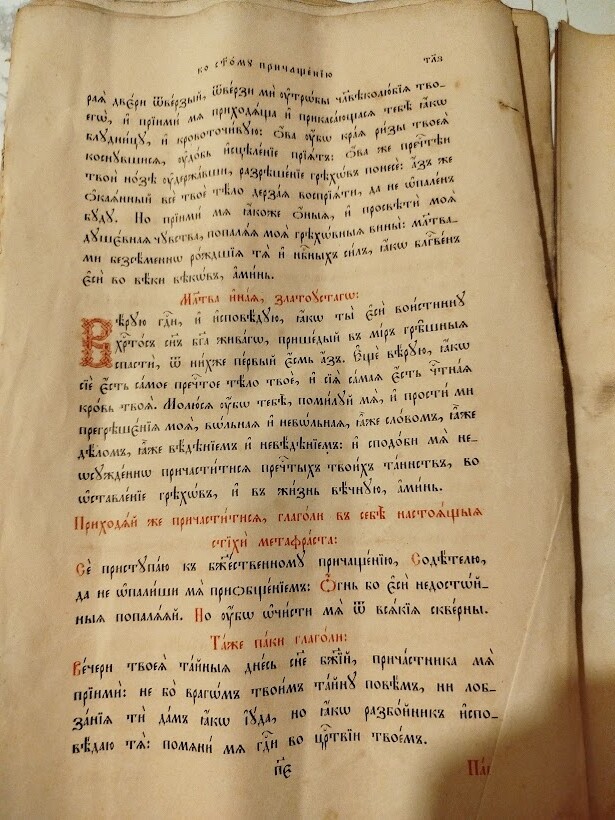 ко ст҃о́мꙋ причаще́нїю тл҃з
рая̀ две́ри ѿве́рзый, ѿве́рзи мѝ ᲂу҆тро́бы чл҃вѣколю́бїѧ тво-
егѡ̀, и҆ прїимѝ мѧ приходѧ́ща и҆ прикаса́ющасѧ тебѣ̀ ꙗ҆́кѡ
блꙋдни́цꙋ, и҆ кровоточи́вꙋю: ѻ҆́ва ᲂу҆́бѡ кра́ѧ ри́зы твоеѧ̀
коснꙋ́вшисѧ, ᲂу҆до́бь и҆сцѣле́нїе прїѧ́тъ: ѻ҆́ва же пречⷭ҇тѣи
твоѝ но́зѣ ᲂу҆держа́вши, разрѣше́нїе грѣхѡ́въ понесѐ: а҆́зъ же
ѻ҆каѧ́нный всѐ твоѐ тѣ́ло дерза́ѧ воспрїѧ́ти, да не ѡ҆пале́нъ
бꙋ́дꙋ. Но прїимѝ мѧ ꙗ҆́коже ѻ҆́ныѧ, и҆ просвѣтѝ моѧ̑
дꙋшє́внаѧ чꙋ̑вства, попалѧ́ѧ моѧ̑ грѣхо́вныѧ вины̑: мл҃тва-
ми без̾сѣ́меннѡ ро́ждшїѧ тѧ̀ и҆ нбⷭ҇ныхъ си́лъ, ꙗ҆́кѡ блг҃ве́нъ
є҆сѝ во вѣ́ки вѣкѡ́въ, а҆ми́нь.
Мл҃тва и҆на́ѧ, златоꙋ́стагѡ:
Вѣ́рꙋю гдⷭ҇и, и҆ и҆сповѣ́дꙋю, ꙗ҆́кѡ ты̀ є҆сѝ вои́стиннꙋ
хрⷭ҇то́съ сн҃ъ бг҃а жива́гѡ, прише́дый въ мі́ръ грѣ̑шныѧ
спастѝ, ѿ ни́хже пе́рвый є҆́смь а҆́зъ. Е҆щѐ вѣ́рꙋю, ꙗ҆́кѡ
сїѐ є҆́сть са́мое пречⷭ҇тое тѣ́ло твоѐ, и҆ сїѧ̀ са́маѧ є҆́сть чⷭ҇тна́ѧ
кро́вь твоѧ̀. Молю́сѧ ᲂу҆̀бо тебѣ̀, поми́лꙋй мѧ̀, и҆ простѝ ми
прегрѣшє́нїѧ моѧ̑, вѡ́льнаѧ и҆ невѡ́льнаѧ, ꙗ҆̀же сло́вомъ, ꙗ҆̀же
дѣ́ломъ, ꙗ҆̀же вѣ́дѣнїемъ и҆ невѣ́дѣнїемъ: и҆ сподо́би мѧ̀ не-
ѡ҆сꙋжде́ннѡ причасти́тисѧ пречⷭ҇тыхъ твои́хъ та́инствъ, во
ѡ҆ставле́нїе грѣхѡ́въ, и҆ въ жи́знь вѣ́чнꙋю, а҆ми́нь.
Приходѧ́й же причасти́тисѧ, глаго́ли въ себѣ̀ настоѧ́щыѧ
стїхѝ метафра́ста:
Сѐ пристꙋпа́ю къ бжⷭ҇твенномꙋ причаще́нїю, Содѣ́телю,
да не ѡ҆пали́ши мѧ̀ приѻбще́нїемъ: Ѻ҆́гнь бо є҆сѝ недостѡ́й-
ныѧ попалѧ́ѧй. Но ᲂу҆̀бо ѡ҆чи́сти мѧ̀ ѿ всѧ́кїѧ скве́рны.
Та́же па́ки глаго́ли:
Ве́чери твоеѧ̀ та́йныѧ дне́сь сн҃е бж҃їй, прича́стника мѧ̀
прїимѝ: не бо̀ врагѡ́мъ твои̑мъ та́йнꙋ повѣ́мъ, ни лоб-
за́нїѧ тѝ да́мъ ꙗ҆́кѡ і҆ꙋ́да, но ꙗ҆́кѡ разбо́йникъ и҆спо-
вѣ́даю тѧ̀: помѧнѝ мѧ гдⷭ҇и во црⷭ҇твїи твое́мъ.
п҃є Па́к